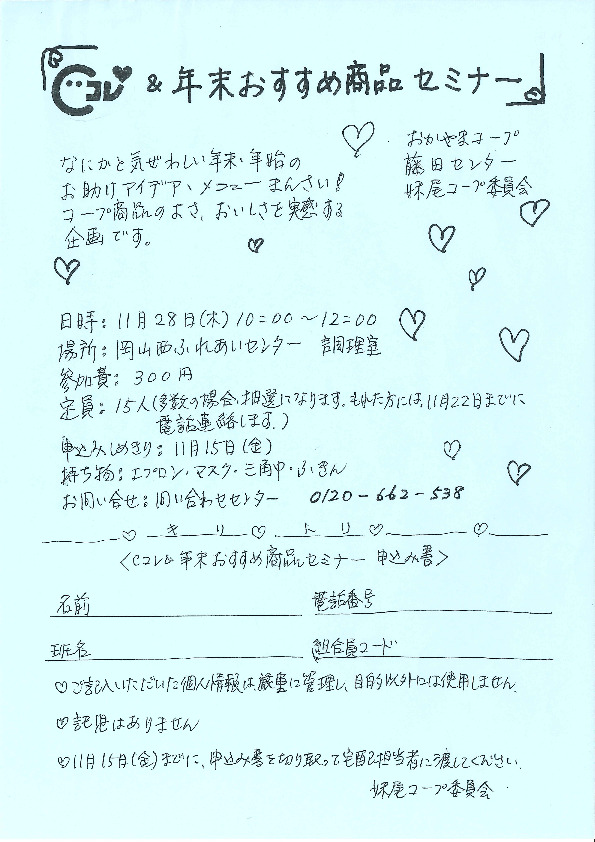 Cコレ & 年末おすすめ商品セミナー
おかやまコープ
藤田センター
妹尾コープ委員会
なにかと気ぜわしい年末・年始の
お助けアイデア・メニューまんさい!
コープ商品のよさ、おいしさを実感する
企画です。
日時：11月28日(木) 10:00～12:00
場所：岡山西ふれあいセンター 調理室
参加費：300円
定員：15人(多数の場合、抽選になります。もれた方には、11月22日までに
電話連絡します。)
申込みしめきり：11月15日(金)
持ち物：エプロン・マスク・三角巾・ふきん
お問い合せ：問い合わせセンター 0120-662-538
きりとり
<Cコレ&年末おすすめ商品セミナー 申込み書>
名前 電話番号
班名 組合員コード
♡ご記入いただいた個人情報は、厳重に管理し、目的以外には使用しません。
♡託児はありません
♡11月15日(金)までに、申込み書を切り取って宅配担当者に渡してください。
妹尾コープ委員会